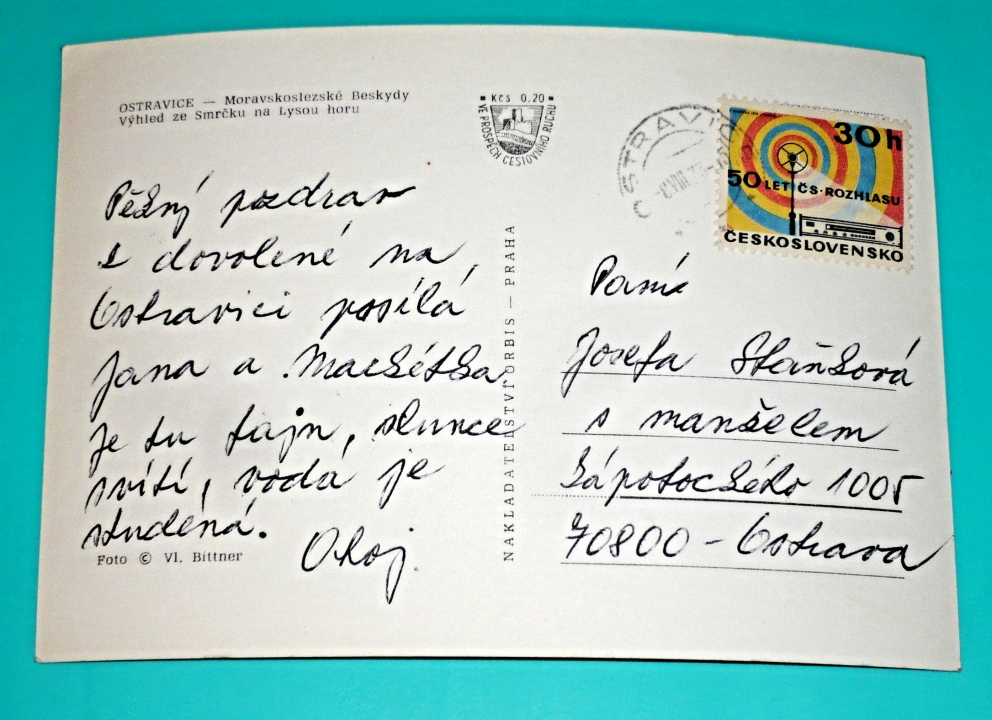 OSTRAVICE — Moravskoslezské Beskydy
Výhled ze Smrčku na Lysou horu
Kčs 0.20
VE PROSPĚCH CESTOVNÍHO RUCHU
OSTRAVICE
30h
50 LET ČS·ROZHLASU
ČESKOSLOVENSKO
Pěkný pozdrav
z dovolené na
Ostravici posílá
Jana a Markétka
Je tu fajn, slunce
svítí, voda je
studená.
Ahoj.
Foto © Vl. Bittner
NAKLADATELSTVÍ ORBIS — PRAHA
Paní
Josefa Staňková
s manželem
Zápotockého 1005
70800 - Ostrava